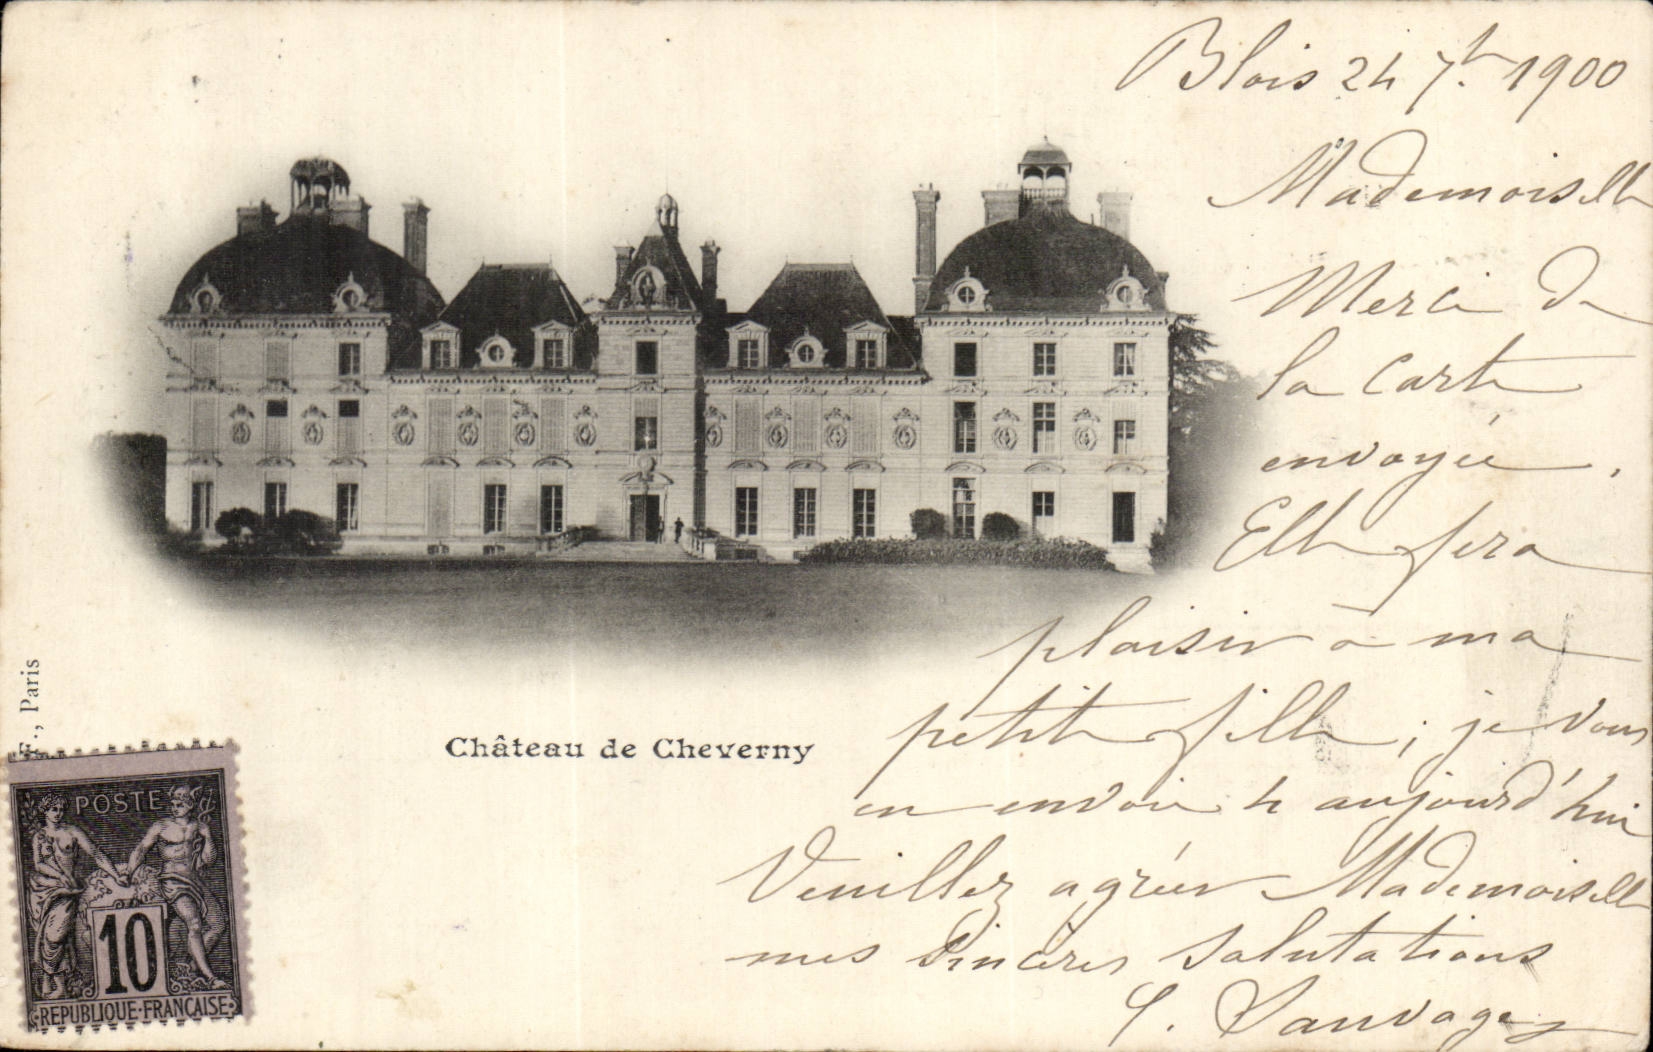 Blois 24 7bre 1900
Mademoiselle
Merci de
la carte
envoyée.
Elle fera
plaisir à ma
petite fille ; je vous
en envoie 4 aujourd'hui
Veuillez agréer Mademoiselle
mes sincères salutations
Sauvage
Château de Cheverny
F., Paris
POSTE
10
REPUBLIQUE·FRANÇAISE